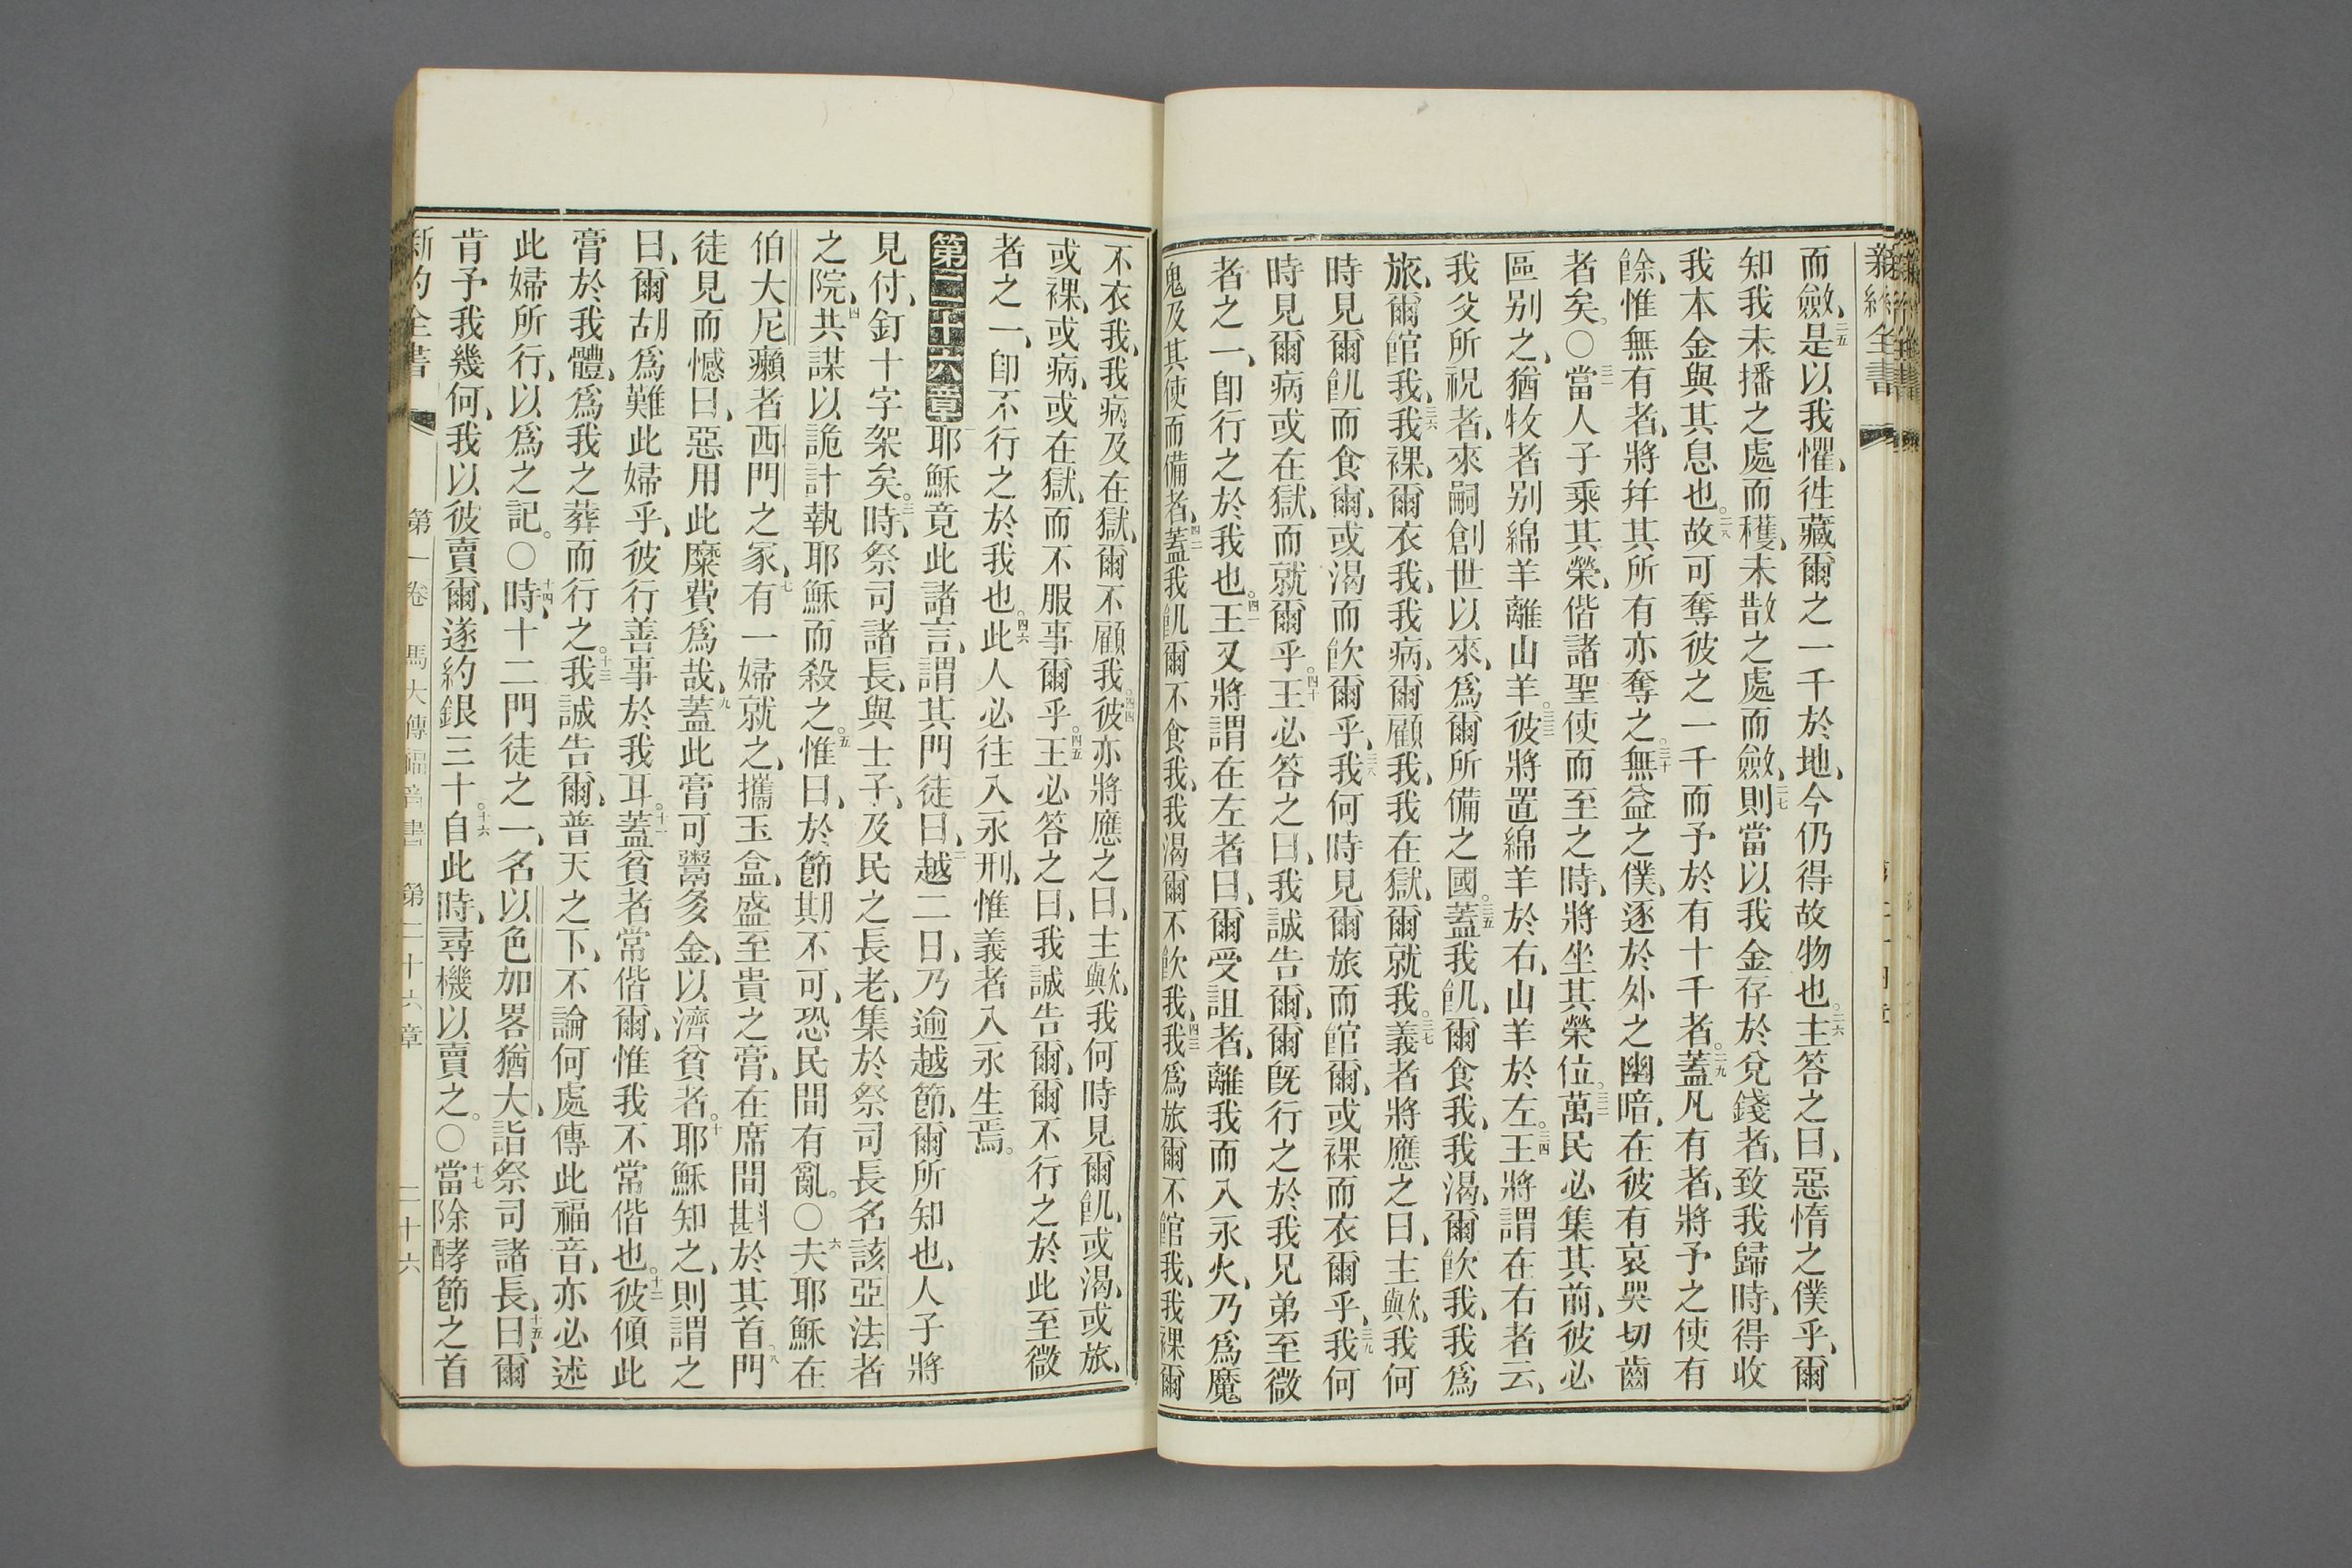 新約全書
而斂、二五是以我懼、徃藏爾之一千於地、今仍得故物也。二六主答之曰、惡惰之僕乎、爾
知我未播之處而穫、未散之處而斂、二七則當以我金存於兌錢者、致我歸時、得收
我本金與其息也。二八故可奪彼之一千而予於有十千者。二九蓋凡有者、將予之使有
餘、惟無有者、將并其所有亦奪之。三十無益之僕、逐於外之幽暗、在彼有哀哭切齒
者矣。〇三一當人子乘其榮、偕諸聖使而至之時、將坐其榮位。三二萬民必集其前、彼必
區别之、猶牧者别綿羊離山羊。三三彼將置綿羊於右、山羊於左。三四王將謂在右者云、
我父所祝者、來嗣創世以來、爲爾所備之國。三五蓋我飢、爾食我、我渴、爾飲我、我爲
旅、爾館我、三六我裸、爾衣我、我病、爾顧我、我在獄、爾就我。三七義者將應之曰、主歟、我何
時見爾飢而食爾、或渴而飲爾乎、三八我何時見爾旅而館爾、或裸而衣爾乎、三九我何
時見爾病或在獄、而就爾乎。四十王必答之曰、我誠告爾、爾旣行之於我兄弟至微
者之一、卽行之於我也。四一王又將謂在左者曰、爾受詛者、離我而入永火、乃爲魔
鬼及其使而備者、四二蓋我飢爾不食我、我渴爾不飲我、四三我爲旅爾不館我、我裸爾
不衣我、我病及在獄、爾不顧我。四四彼亦將應之曰、主歟、我何時見爾飢、或渴、或旅、
或裸、或病、或在獄、而不服事爾乎。四五王必答之曰、我誠告爾、爾不行之於此至微
者之一、卽不行之於我也。四六此人必往入永刑、惟義者入永生焉。
第二十六章一耶穌竟此諸言、謂其門徒曰、二越二日、乃逾越節、爾所知也、人子將
見付、釘十字架矣。三時、祭司諸長、與士子、及民之長老、集於祭司長名該亞法者
之院、四共謀以詭計執耶穌而殺之。五惟曰、於節期不可、恐民間有亂。〇六夫耶穌在
伯大尼癩者西門之家、七有一婦就之、攜玉盒、盛至貴之膏、在席間斟於其首、八門
徒見而憾曰、惡用此糜費爲哉、九蓋此膏可鬻多金、以濟貧者。十耶穌知之、則謂之
曰、爾胡爲難此婦乎、彼行善事於我耳。十一蓋貧者常偕爾、惟我不常偕也。十二彼傾此
膏於我體、爲我之葬而行之。十三我誠告爾、普天之下、不論何處傳此福音、亦必述
此婦所行、以爲之記。〇十四時、十二門徒之一、名以色加畧猶大、詣祭司諸長、十五曰、爾
肯予我幾何、我以彼賣爾、遂約銀三十。十六自此時、尋機以賣之。〇十七當除酵節之首
新約全書 第一卷 馬大傳福音書 第二十六章 二十六